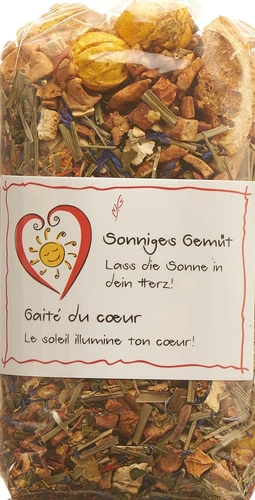 Sonniges Gemüt
Lass die Sonne in
dein Herz!
Gaité du cœur
Le soleil illumine ton cœur!